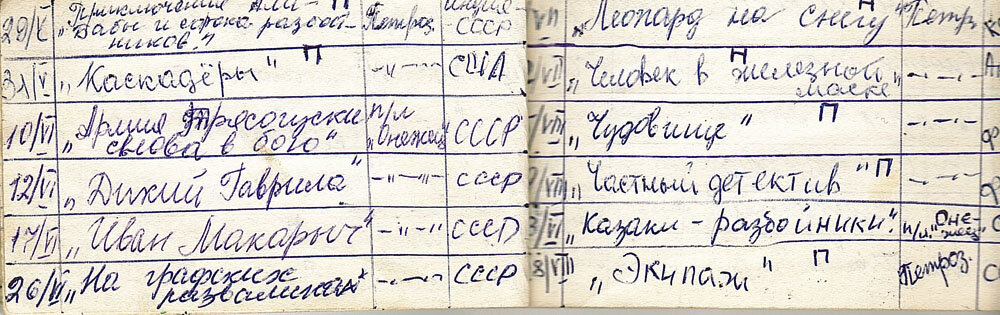 29/V „Приключения Али- П Индия-
Бабы и сорока разбой- Петроз. СССР
ников."
31/V „Каскадёры" П –„–„– США
10/VI „Армия Трясогузки п/л СССР
снова в бою" „Онежец"
12/VI „Дикий Гаврила" –„–„– СССР
17/VI „Иван Макарыч" –„–„– СССР
26/VI „На графских –„–„– СССР
развалинах"
/VII „Леопард на снегу" Петр.
2/VII „Человек в железной Н –„–„– А
маске"
/VII „Чудовище" П –„–„–
/VII „Частный детектив" П –„–„– Ф
3/VII „Казаки-разбойники." п/л „Оне- С
жец"
8/VII „Экипаж" П Петроз. С